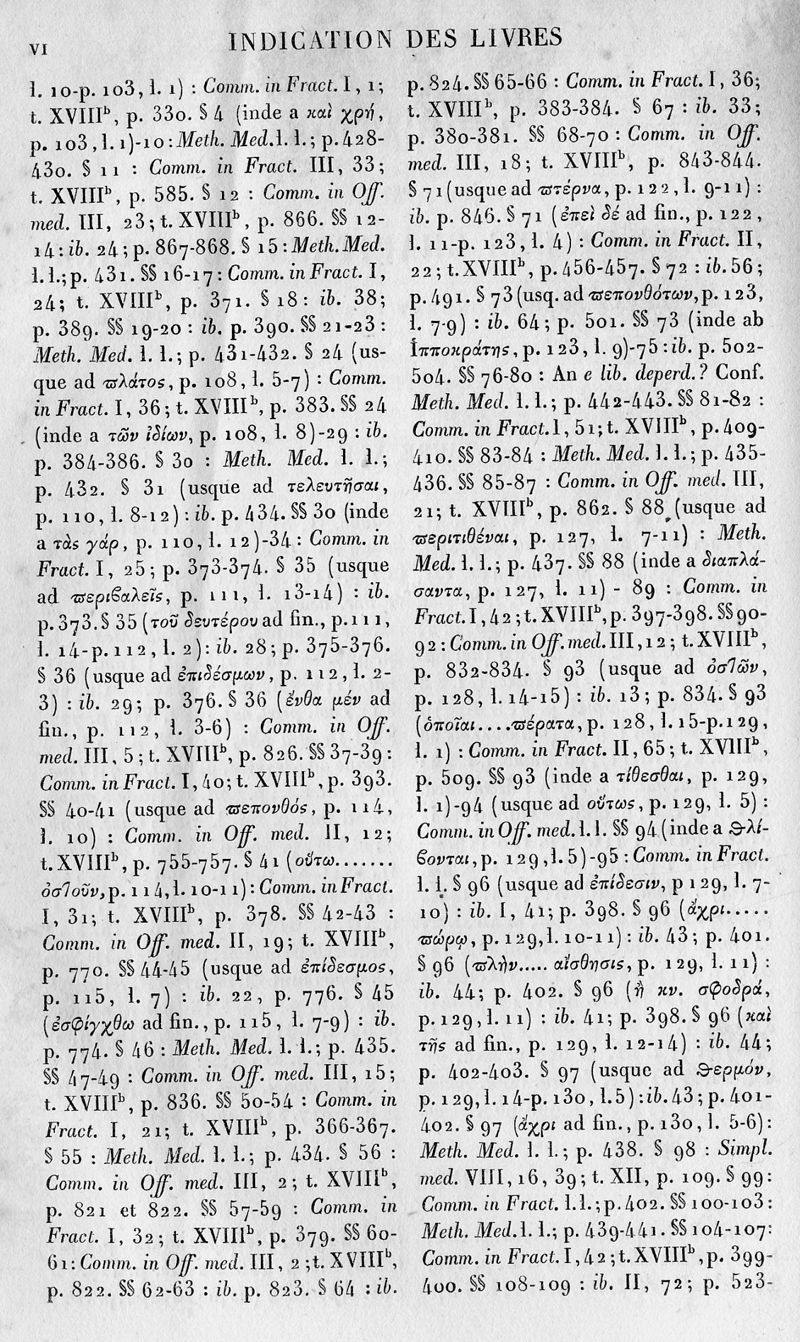 VI
INDICATION DES LIVRES
l. 10-p. 103, l. 1) : Comm. in Fract. I, 1;
t. XVIIIᵇ, p. 330. § 4 (inde a καὶ χρή,
p. 103, l. 1)-10 : Meth. Med. l. l.; p. 428-
430. § 11 : Comm. in Fract. III, 33;
t. XVIIIᵇ, p. 585. § 12 : Comm. in Off.
med. III, 23; t. XVIIIᵇ, p. 866. §§ 12-
14 : ib. 24; p. 867-868. § 15 : Meth. Med.
l. l.; p. 431. §§ 16-17 : Comm. in Fract. I,
24; t. XVIIIᵇ, p. 371. § 18 : ib. 38;
p. 389. §§ 19-20 : ib. p. 390. §§ 21-23 :
Meth. Med. l. l.; p. 431-432. § 24 (us-
que ad ϖλάτος, p. 108, l. 5-7) : Comm.
in Fract. I, 36; t. XVIIIᵇ, p. 383. §§ 24
(inde a τῶν ἰδίων, p. 108, l. 8)-29 : ib.
p. 384-386. § 30 : Meth. Med. l. l.;
p. 432. § 31 (usque ad τελευτῆσαι,
p. 110, l. 8-12) : ib. p. 434. §§ 30 (inde
a τὰς γάρ, p. 110, l. 12)-34 : Comm. in
Fract. I, 25; p. 373-374. § 35 (usque
ad ϖεριϐαλεῖς, p. 111, l. 13-14) : ib.
p. 373. § 35 (τοῦ δευτέρου ad fin., p. 111,
l. 14-p. 112, l. 2) : ib. 28; p. 375-376.
§ 36 (usque ad ἐπιδέσμων, p. 112, l. 2-
3) : ib. 29; p. 376. § 36 (ἔνθα μέν ad
fin., p. 112, l. 3-6) : Comm. in Off.
med. III, 5; t. XVIIIᵇ, p. 826. §§ 37-39 :
Comm. in Fract. I, 40; t. XVIIIᵇ, p. 393.
§§ 40-41 (usque ad ϖεπονθός, p. 114,
l. 10) : Comm. in Off. med. II, 12;
t. XVIIIᵇ, p. 755-757. § 41 (οὕτω.......
ὀστοῦν, p. 114, l. 10-11) : Comm. in Fract.
I, 31; t. XVIIIᵇ, p. 378. §§ 42-43 :
Comm. in Off. med. II, 19; t. XVIIIᵇ,
p. 770. §§ 44-45 (usque ad ἐπίδεσμος,
p. 115, l. 7) : ib. 22, p. 776. § 45
(ἐσφίγχθω ad fin., p. 115, l. 7-9) : ib.
p. 774. § 46 : Meth. Med. l. l.; p. 435.
§§ 47-49 : Comm. in Off. med. III, 15;
t. XVIIIᵇ, p. 836. §§ 50-54 : Comm. in
Fract. I, 21; t. XVIIIᵇ, p. 366-367.
§ 55 : Meth. Med. l. l.; p. 434. § 56 :
Comm. in Off. med. III, 2; t. XVIIIᵇ,
p. 821 et 822. §§ 57-59 : Comm. in
Fract. I, 32; t. XVIIIᵇ, p. 379. §§ 60-
61 : Comm. in Off. med. III, 2; t. XVIIIᵇ,
p. 822. §§ 62-63 : ib. p. 823. § 64 : ib.
p. 824. §§ 65-66 : Comm. in Fract. I, 36;
t. XVIIIᵇ, p. 383-384. § 67 : ib. 33;
p. 380-381. §§ 68-70 : Comm. in Off.
med. III, 18; t. XVIIIᵇ, p. 843-844.
§ 71 (usque ad ϖτέρνα, p. 122, l. 9-11) :
ib. p. 846. § 71 (ἐπεὶ δέ ad fin., p. 122,
l. 11-p. 123, l. 4) : Comm. in Fract. II,
22; t. XVIIIᵇ, p. 456-457. § 72 : ib. 56;
p. 491. § 73 (usq. ad ϖεπονθότων, p. 123,
l. 7-9) : ib. 64; p. 501. §§ 73 (inde ab
Ἱπποκράτης, p. 123, l. 9)-75 : ib. p. 502-
504. §§ 76-80 : An e lib. deperd.? Conf.
Meth. Med. l. l.; p. 442-443. §§ 81-82 :
Comm. in Fract. I, 51; t. XVIIIᵇ, p. 409-
410. §§ 83-84 : Meth. Med. l. l.; p. 435-
436. §§ 85-87 : Comm. in Off. med. III,
21; t. XVIIIᵇ, p. 862. § 88 (usque ad
ϖεριτιθέναι, p. 127, l. 7-11) : Meth.
Med. l. l.; p. 437. §§ 88 (inde a διαπλά-
σαντα, p. 127, l. 11) - 89 : Comm. in
Fract. I, 42; t. XVIIIᵇ, p. 397-398. §§ 90-
92 : Comm. in Off. med. III, 12; t. XVIIIᵇ,
p. 832-834. § 93 (usque ad ὀστῶν,
p. 128, l. 14-15) : ib. 13; p. 834. § 93
(ὁποῖαι....ϖέρατα, p. 128, l. 15-p. 129,
l. 1) : Comm. in Fract. II, 65; t. XVIIIᵇ,
p. 509. §§ 93 (inde a τίθεσθαι, p. 129,
l. 1)-94 (usque ad οὕτως, p. 129, l. 5) :
Comm. in Off. med. l. l. §§ 94 (inde a ϑλί-
ϐονται, p. 129, l. 5)-95 : Comm. in Fract.
l. l. § 96 (usque ad ἐπίδεσιν, p 129, l. 7-
10) : ib. I, 41; p. 398. § 96 (ἄχρι.....
ϖώρῳ, p. 129, l. 10-11) : ib. 43; p. 401.
§ 96 (ϖλὴν..... αἴσθησις, p. 129, l. 11) :
ib. 44; p. 402. § 96 (ἢ κν. σφοδρά,
p. 129, l. 11) : ib. 41; p. 398. § 96 (καὶ
τῆς ad fin., p. 129, l. 12-14) : ib. 44;
p. 402-403. § 97 (usque ad ϑερμόν,
p. 129, l. 14-p. 130, l. 5) : ib. 43; p. 401-
402. § 97 (ἄχρι ad fin., p. 130, l. 5-6) :
Meth. Med. l. l.; p. 438. § 98 : Simpl.
med. VIII, 16, 39; t. XII, p. 109. § 99 :
Comm. in Fract. l. l.; p. 402. §§ 100-103 :
Meth. Med. l. l.; p. 439-441. §§ 104-107 :
Comm. in Fract. I, 42; t. XVIIIᵇ, p. 399-
400. §§ 108-109 : ib. II, 72; p. 523-